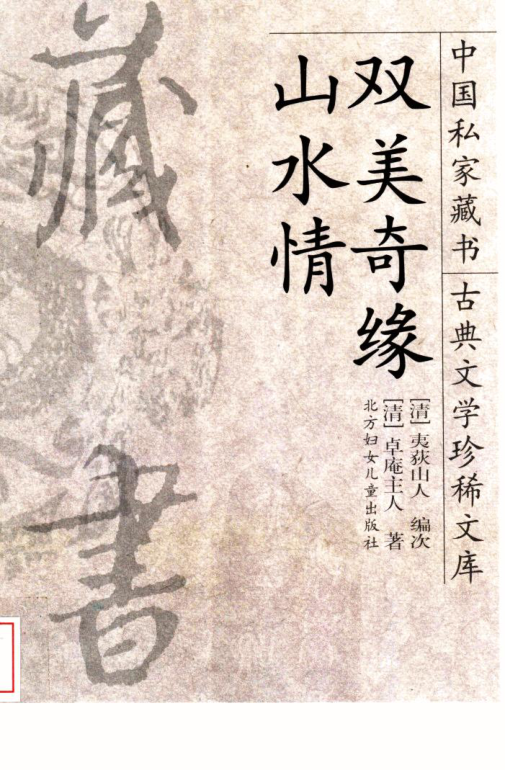 中国私家藏书
古典文学珍稀文库
双美奇缘
山水情
[清]夷荻山人 编次
[清]卓庵主人 著
北方妇女儿童出版社
藏書